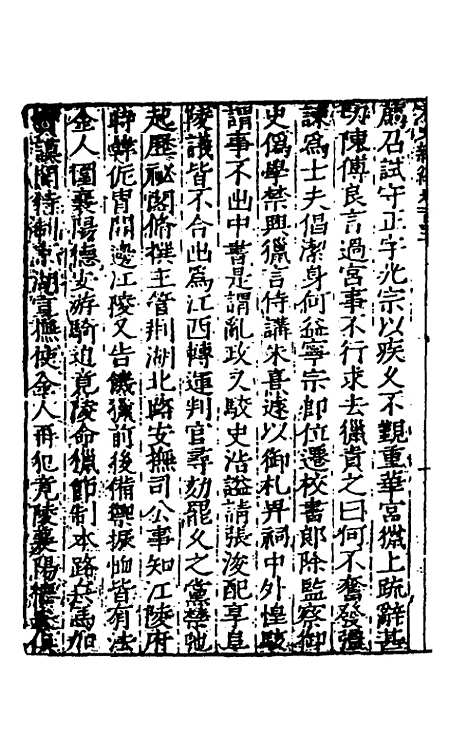 薦召試守正字光宗以疾久不覲重華宮獵上疏辭甚
切陳傅良言過宮事不行求去獵責之曰何不奮發彊
諫爲士夫倡潔身何益寧宗即位遷校書郎除監察御
史僞學禁興獵言侍講朱熹遽以御札畀祠中外惶駭
謂事不出中書是謂亂政又駁史浩謚請張浚配享阜
陵議皆不合出爲江西轉運判官尋劾罷久之黨禁弛
起歷祕閣修撰主管荆湖北路安撫司公事知江陵府
時韓侂胄開邊江陵又告饑獵前後備禦振恤皆有法
金人圍襄陽德安游騎迫竟陵命獵節制本路兵馬加
寶謨閣待制京湖宣撫使金人再犯竟陵襄陽